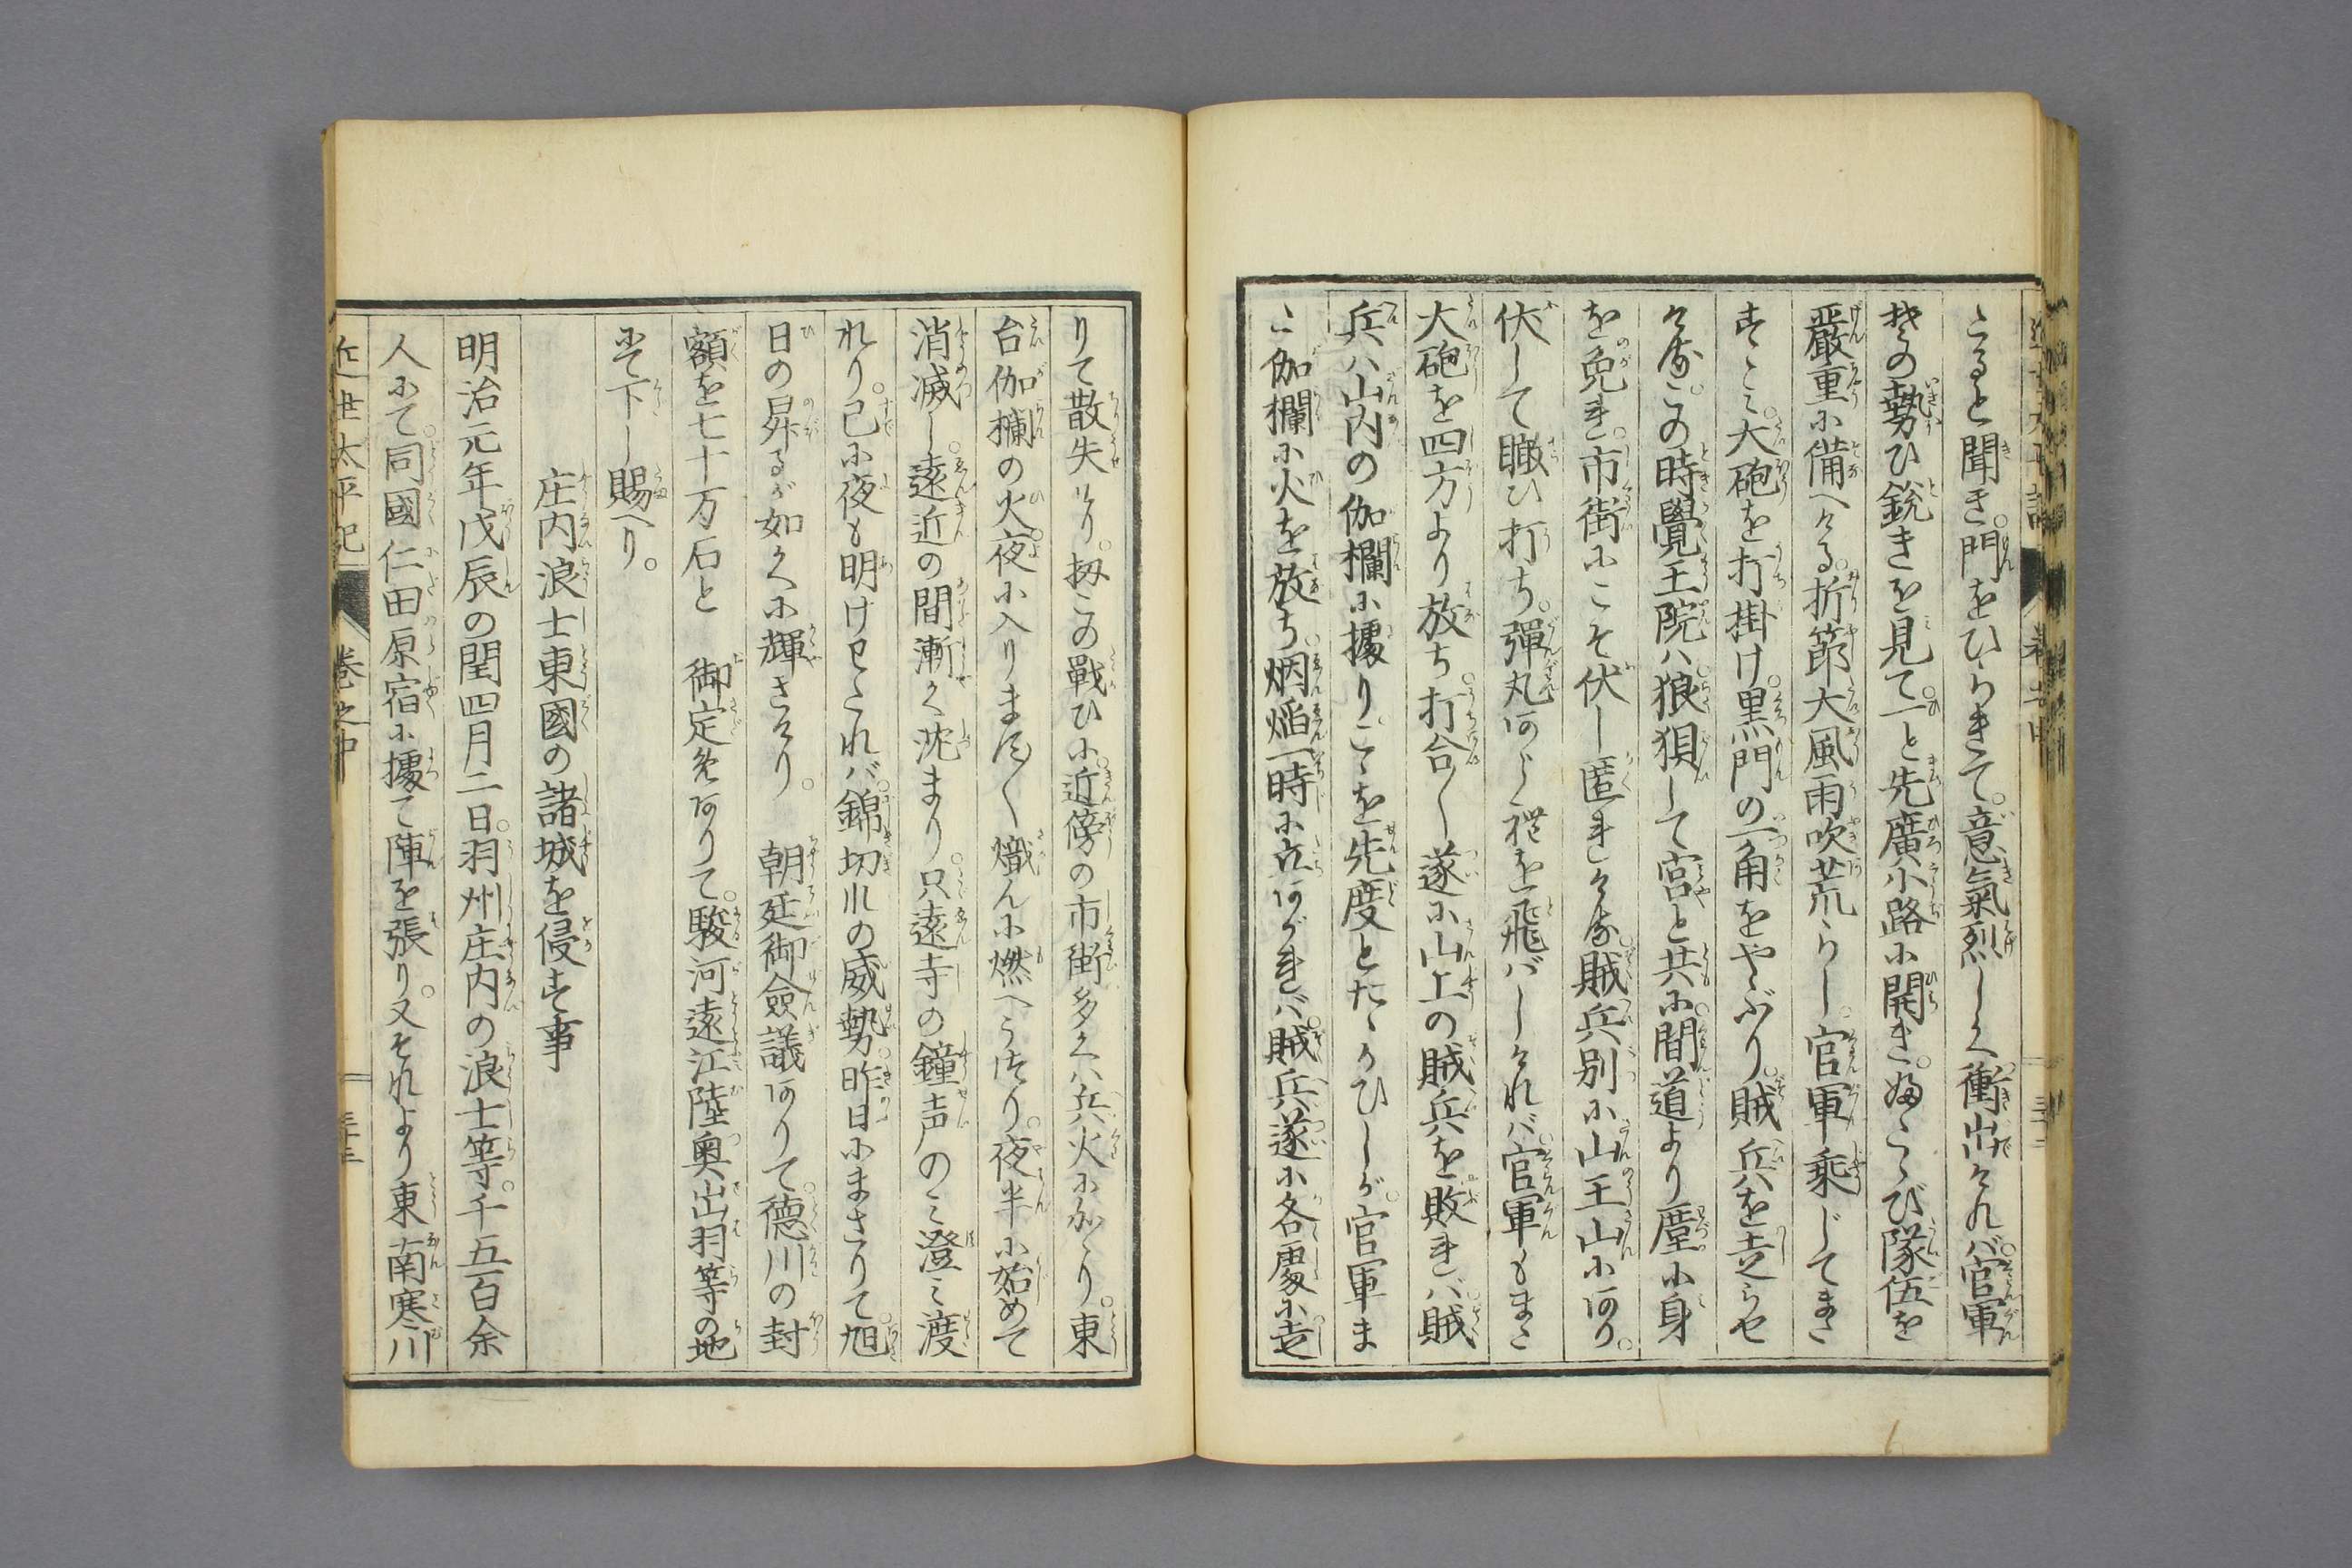 こると聞き。門をひらきて。意氣烈しく衝出ければ。官軍
其の勢ひ鋭きを見て。一と先廣小路に開き。ふたゝび隊伍を
嚴重に備へける。折節大風雨吹荒らし。官軍乘じてまさ
すゝみ。大砲を打掛け。黒門の一角をやぶり。賊兵を走らせ
ける。この時覺王院ハ。狼狽して宮と共に。間道より塵に身
を免れ。市街にこそ伏し匿れける。賊兵別に山王山にあり。
伏して瞰ひ打ち。彈丸あられを飛バしければ。官軍もまた
大砲を四方より放ち。打合〳〵遂に山上の賊兵を敗れバ。賊
兵ハ山内の伽欄に據り。こゝを先度とたゝかひしが。官軍ま
た伽欄に火を放ち。烟焔一時に立あがれバ。賊兵遂に各處に走
りて散失けり。扨この戰ひに。近傍の市街多くハ兵火にかゝり。東
台伽欄の火。夜に入ります〳〵熾んに燃へうつり。夜半に始めて
消滅し。遠近の間漸く沈まり。只遠寺の鐘声のミ澄ミ渡
れり。已に夜も明けわたれバ。錦切れの威勢。昨日にまさりて。旭
日の昇るが如くに輝きけり。 朝廷御僉議ありて。德川の封
額を七十万石と 御定めありて。駿河遠江陸奥出羽等の地
にて下し賜へり。
庄内浪士東國の諸城を侵す事
明治元年戊辰の閏四月二日。羽州庄内の浪士等。千五百余
人にて。同國仁田原宿に據て陣を張り。又それより東南寒川
近世太平記 巻之中 三十三